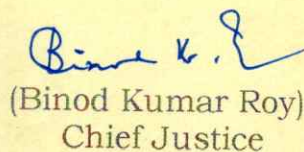 Binod K. 
(Binod Kumar Roy)
Chief Justice